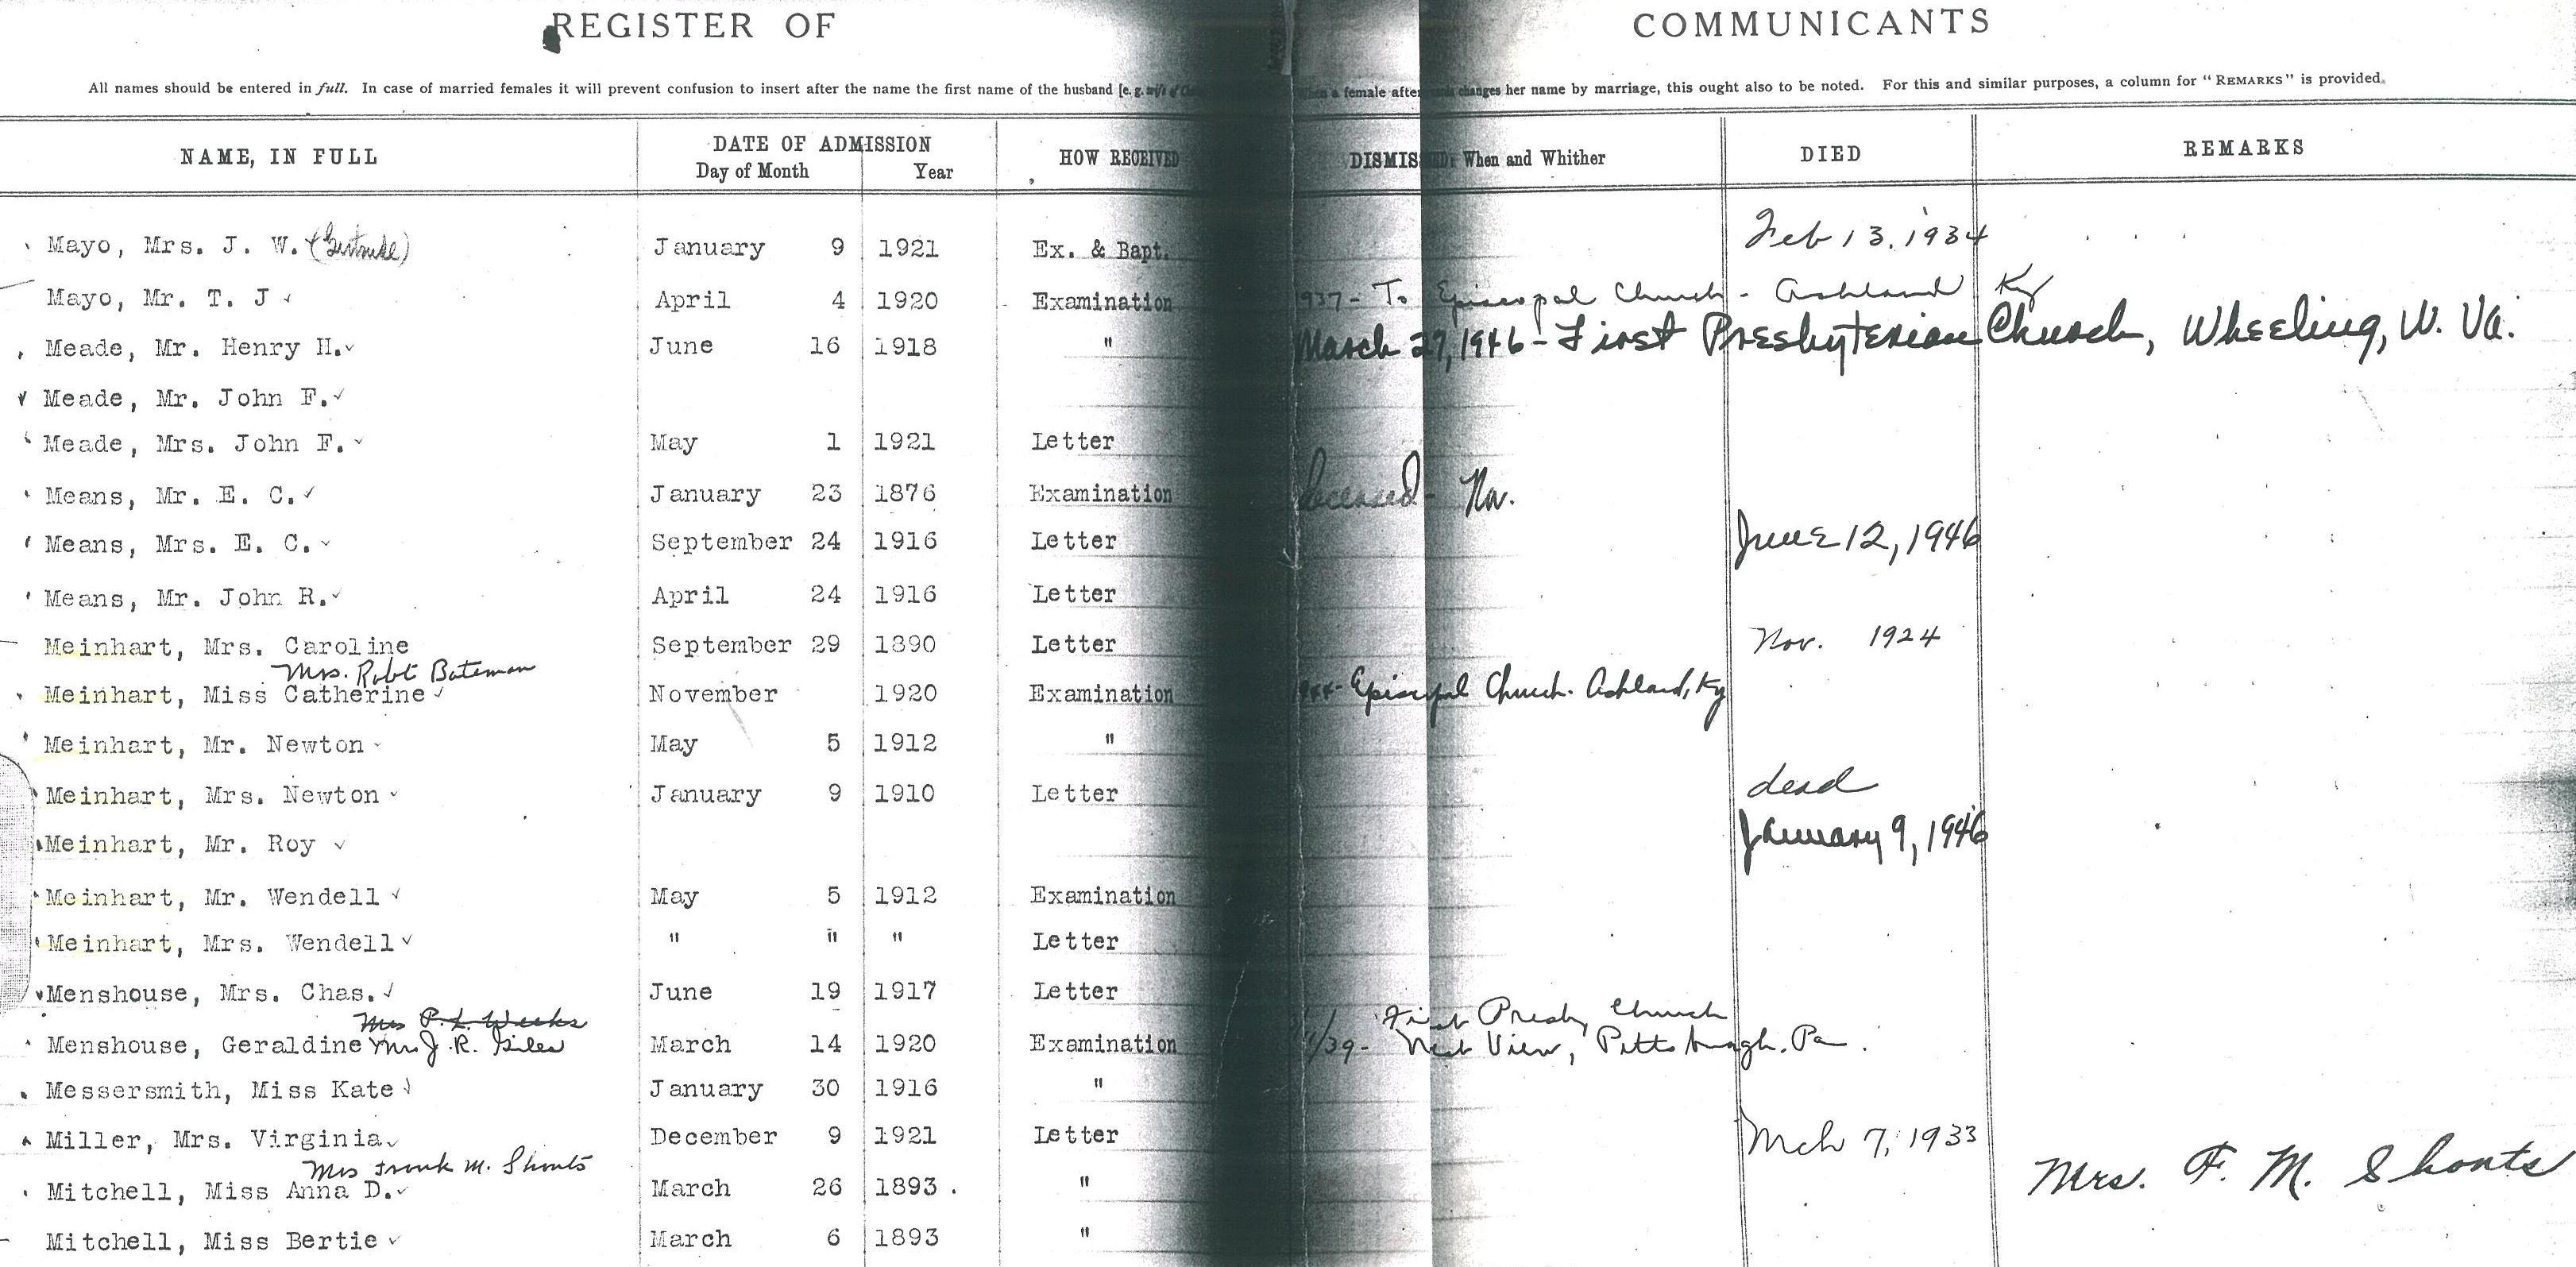 REGISTER OF COMMUNICANTS
All names should be entered in full. In case of married females it will prevent confusion to insert after the name the first name of the husband [e. g. wife of When a female afterwards changes her name by marriage, this ought also to be noted. For this and similar purposes, a column for "REMARKS" is provided.
NAME, IN FULL DATE OF ADMISSION HOW RECEIVED DISMISSED: When and Whither DIED REMARKS
Day of Month Year
Mayo, Mrs. J. W. (Gertrude) January 9 1921 Ex. & Bapt. Feb 13, 1934
Mayo, Mr. T. J April 4 1920 Examination 1937 - To Episcopal Church - Ashland Ky
Meade, Mr. Henry H. June 16 1918 " March 27, 1946 - First Presbyterian Church, Wheeling, W. Va.
Meade, Mr. John F.
Meade, Mrs. John F. May 1 1921 Letter
Means, Mr. E. C. January 23 1876 Examination Deceased -
Means, Mrs. E. C. September 24 1916 Letter June 12, 1946
Means, Mr. John R. April 24 1916 Letter
Meinhart, Mrs. Caroline September 29 1890 Letter Nov. 1924
Mrs. Robt Bateman
Meinhart, Miss Catherine November 1920 Examination 1944- Episcopal Church. Ashland, Ky
Meinhart, Mr. Newton May 5 1912 "
Meinhart, Mrs. Newton January 9 1910 Letter dead
Meinhart, Mr. Roy January 9, 1946
Meinhart, Mr. Wendell May 5 1912 Examination
Meinhart, Mrs. Wendell " " " Letter
Menshouse, Mrs. Chas. June 19 1917 Letter
Mrs P. L. Weeks First Presby Church
Menshouse, Geraldine Mrs J. R. Giles March 14 1920 Examination /39- West View, Pittsburgh. Pa.
Messersmith, Miss Kate January 30 1916 "
Miller, Mrs. Virginia December 9 1921 Letter Mch 7, 1933
Mrs Frank M. Shonts
Mitchell, Miss Anna D. March 26 1893. " Mrs. F. M. Shonts
Mitchell, Miss Bertie March 6 1893 "